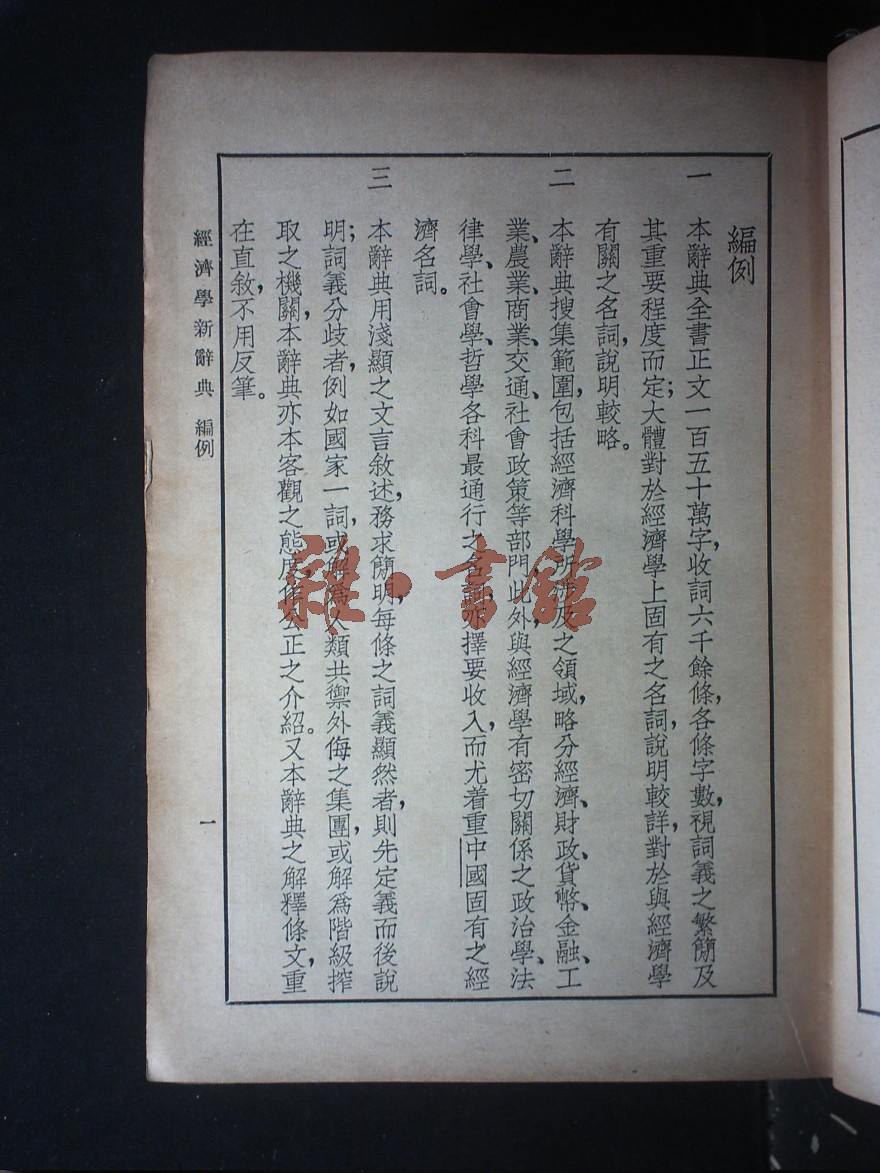 編例
一 本辭典全書正文一百五十萬字，收詞六千餘條，各條字數，視詞義之繁簡及
其重要程度而定；大體對於經濟學上固有之名詞，說明較詳，對於與經濟學
有關之名詞，說明較略。
二 本辭典搜集範圍，包括經濟科學所涉及之領域，略分經濟、財政、貨幣、金融、工
業、農業、商業、交通、社會政策等部門；此外與經濟學有密切關係之政治學、法
律學、社會學、哲學各科最通行之名詞，亦擇要收入，而尤着重中國固有之經
濟名詞。
三 本辭典用淺顯之文言敘述，務求簡明，每條之詞義顯然者，則先定義而後說
明；詞義分歧者，例如國家一詞，或解爲人類共禦外侮之集團，或解爲階級搾
取之機關，本辭典亦本客觀之態度，作公正之介紹。又本辭典之解釋條文，重
在直敘，不用反筆。
經濟學新辭典 編例
一
雜·書館